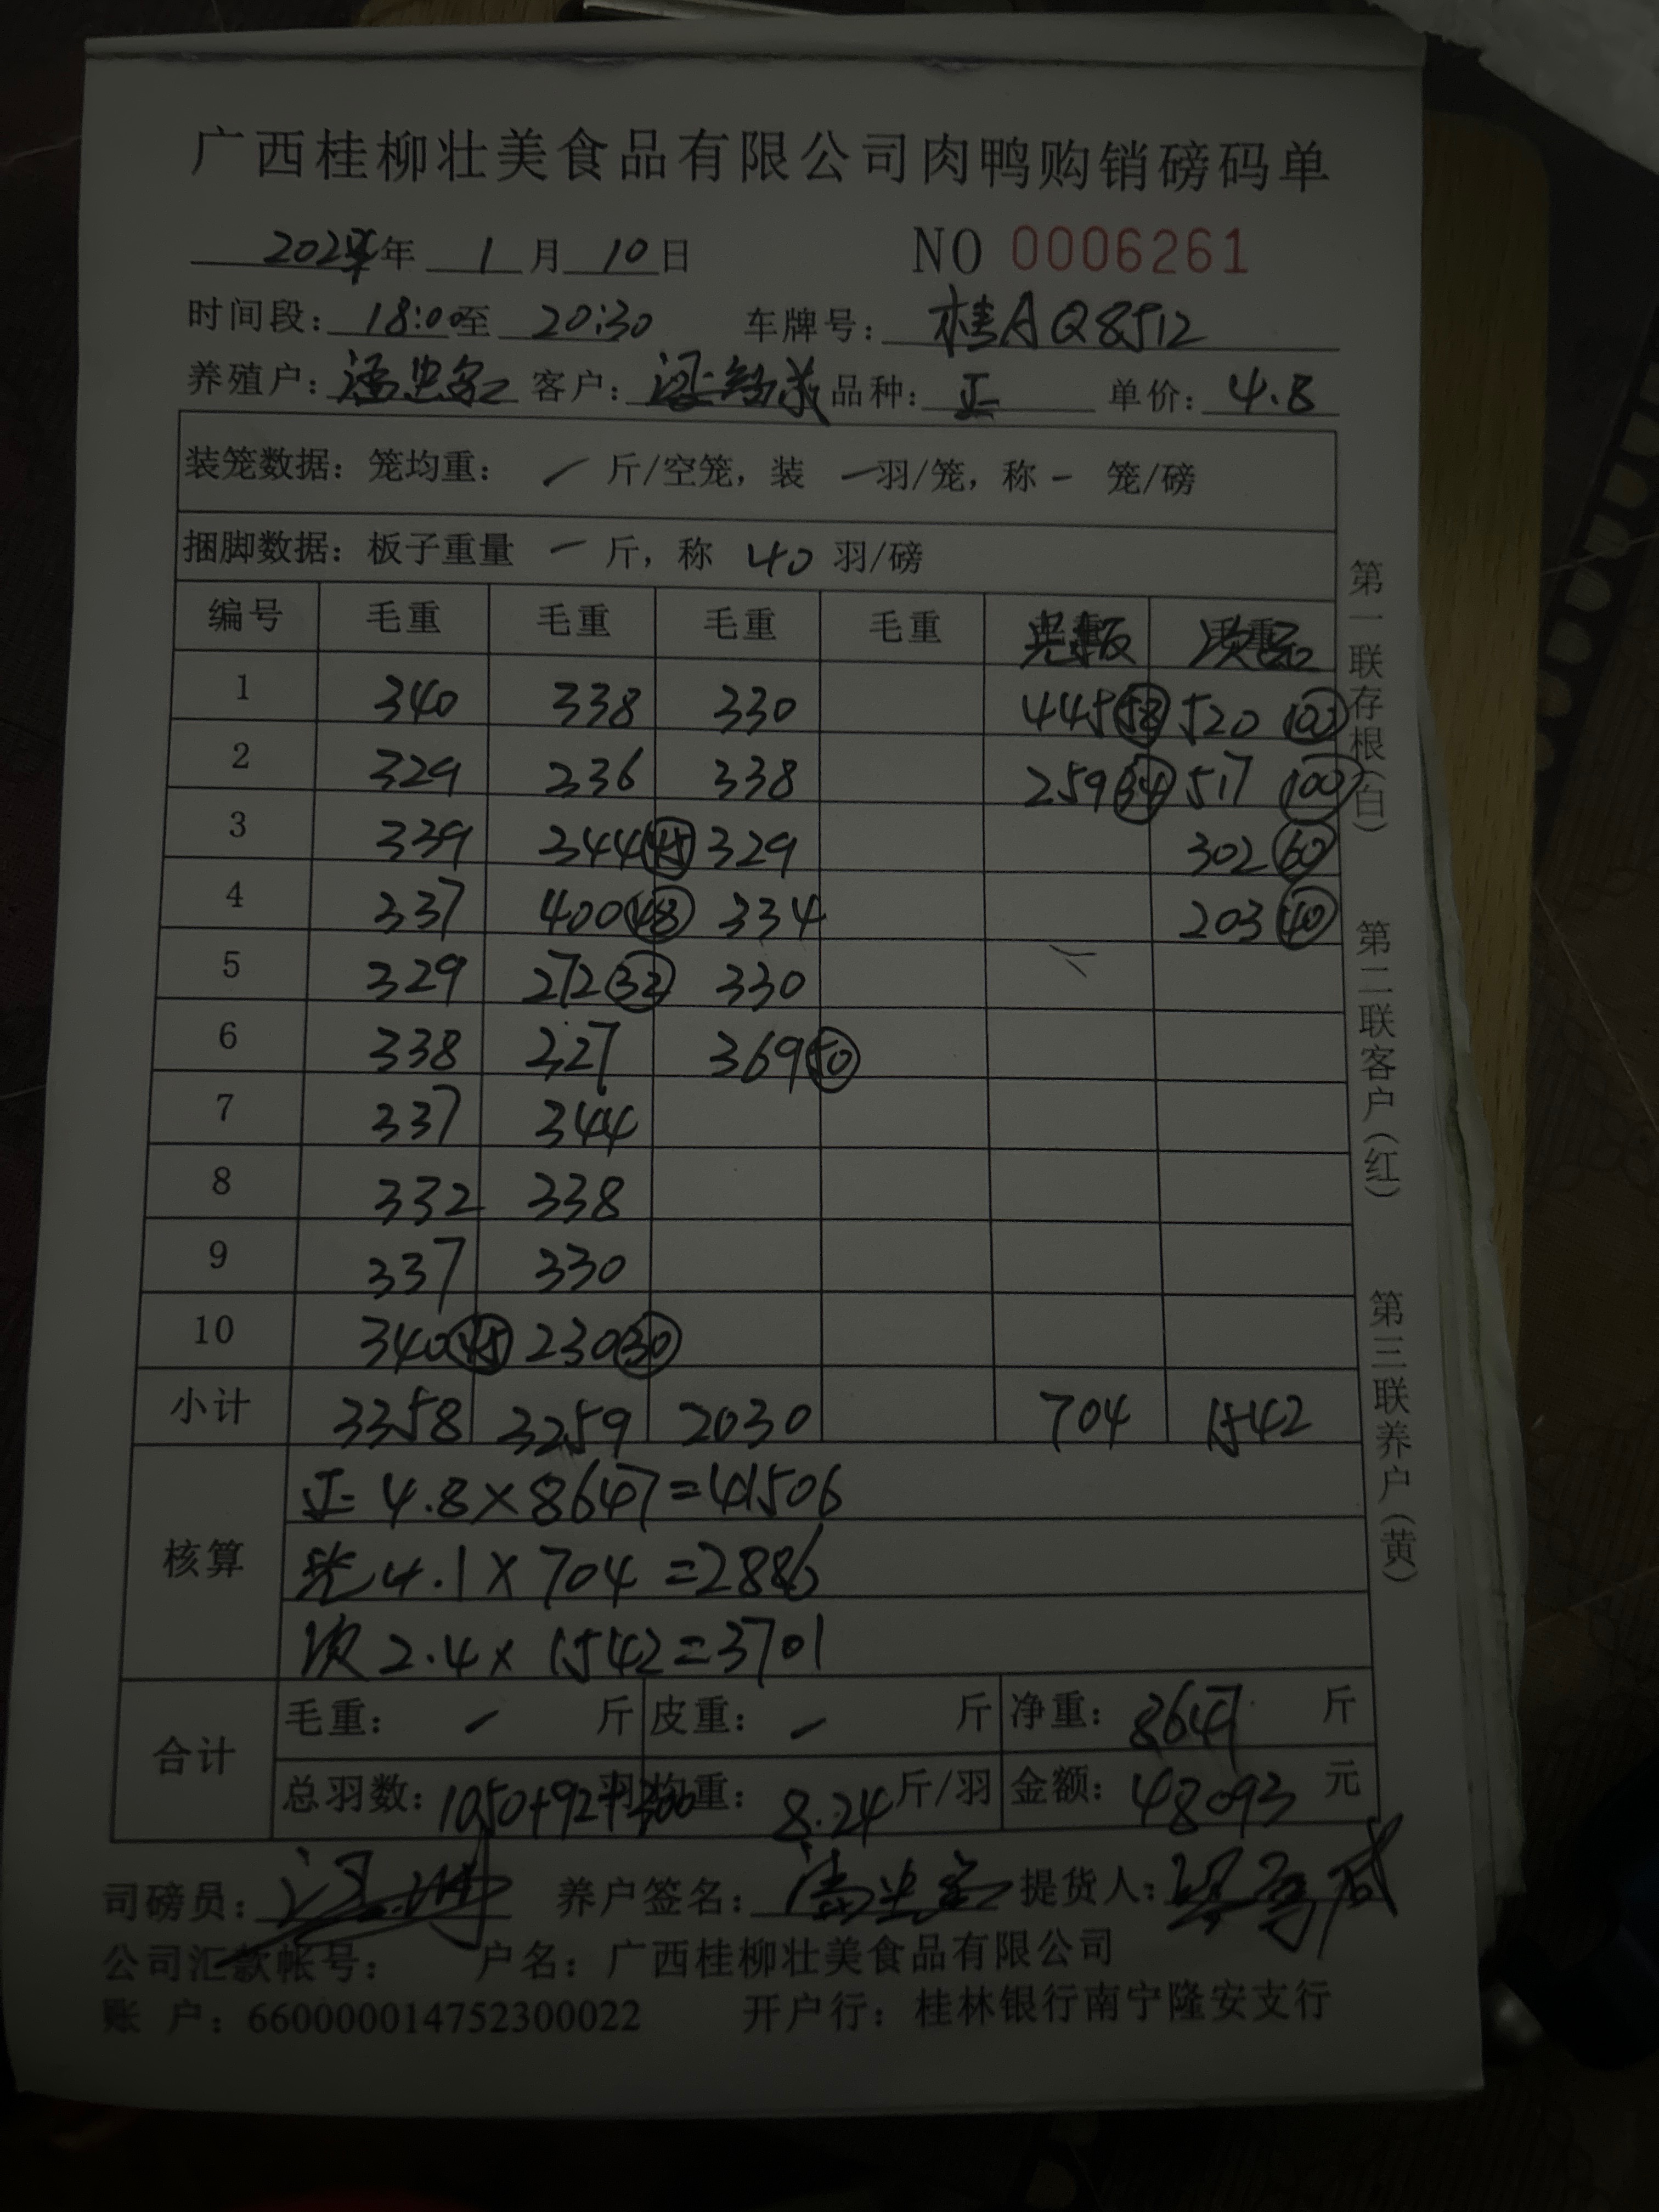 广西桂柳壮美食品有限公司肉鸭购销磅码单
年 1 月 10 日 NO 0006261
时间段: 18:00 至 20:30 车牌号: 桂AQ8512
养殖户: 客户: 品种: 正 单价: 4.8
装笼数据: 笼均重: 斤/空笼, 装 一 羽/笼, 称 - 笼/磅
捆脚数据: 板子重量 一 斤, 称 40 羽/磅
编号 毛重 毛重 毛重 毛重
1 340 338 330 445 58 520 100
2 329 336 338 259 34 517 100
3 339 344 45 329 302 60
4 337 400 48 334 203 40
5 329 272 32 330
6 338 327 369 50
7 337 344
8 332 338
9 337 330
10 340 45 230 30
小计 3358 3259 2030 704 1542
核算
正 4.8×8647=41506
光 4.1×704=2886
次 2.4×1542=3701
合计 毛重: 斤 皮重: 斤 净重: 8647 斤
总羽数: 1050+92+300 羽 均重: 8.24 斤/羽 金额: 48093 元
司磅员: 养户签名: 提货人:
公司汇款帐号: 户名: 广西桂柳壮美食品有限公司
账 户: 660000014752300022 开户行: 桂林银行南宁隆安支行
第一联存根(白)
第二联客户(红)
第三联养户(黄)